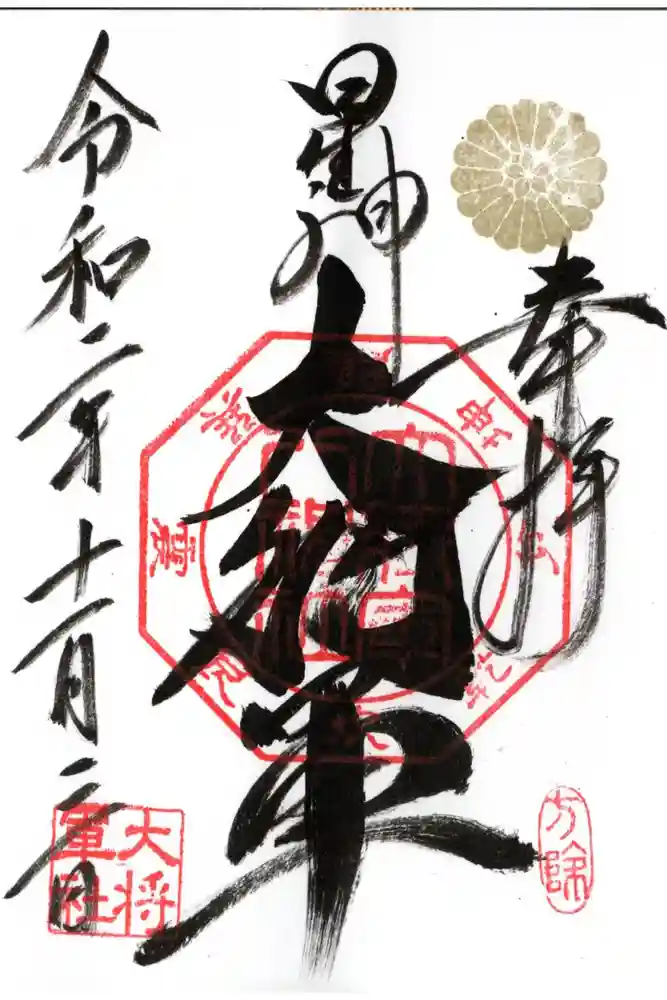 奉拝
星神
大将軍
令和二年十一月二日
方除
大将軍社
坤
乾
艮
震
巽